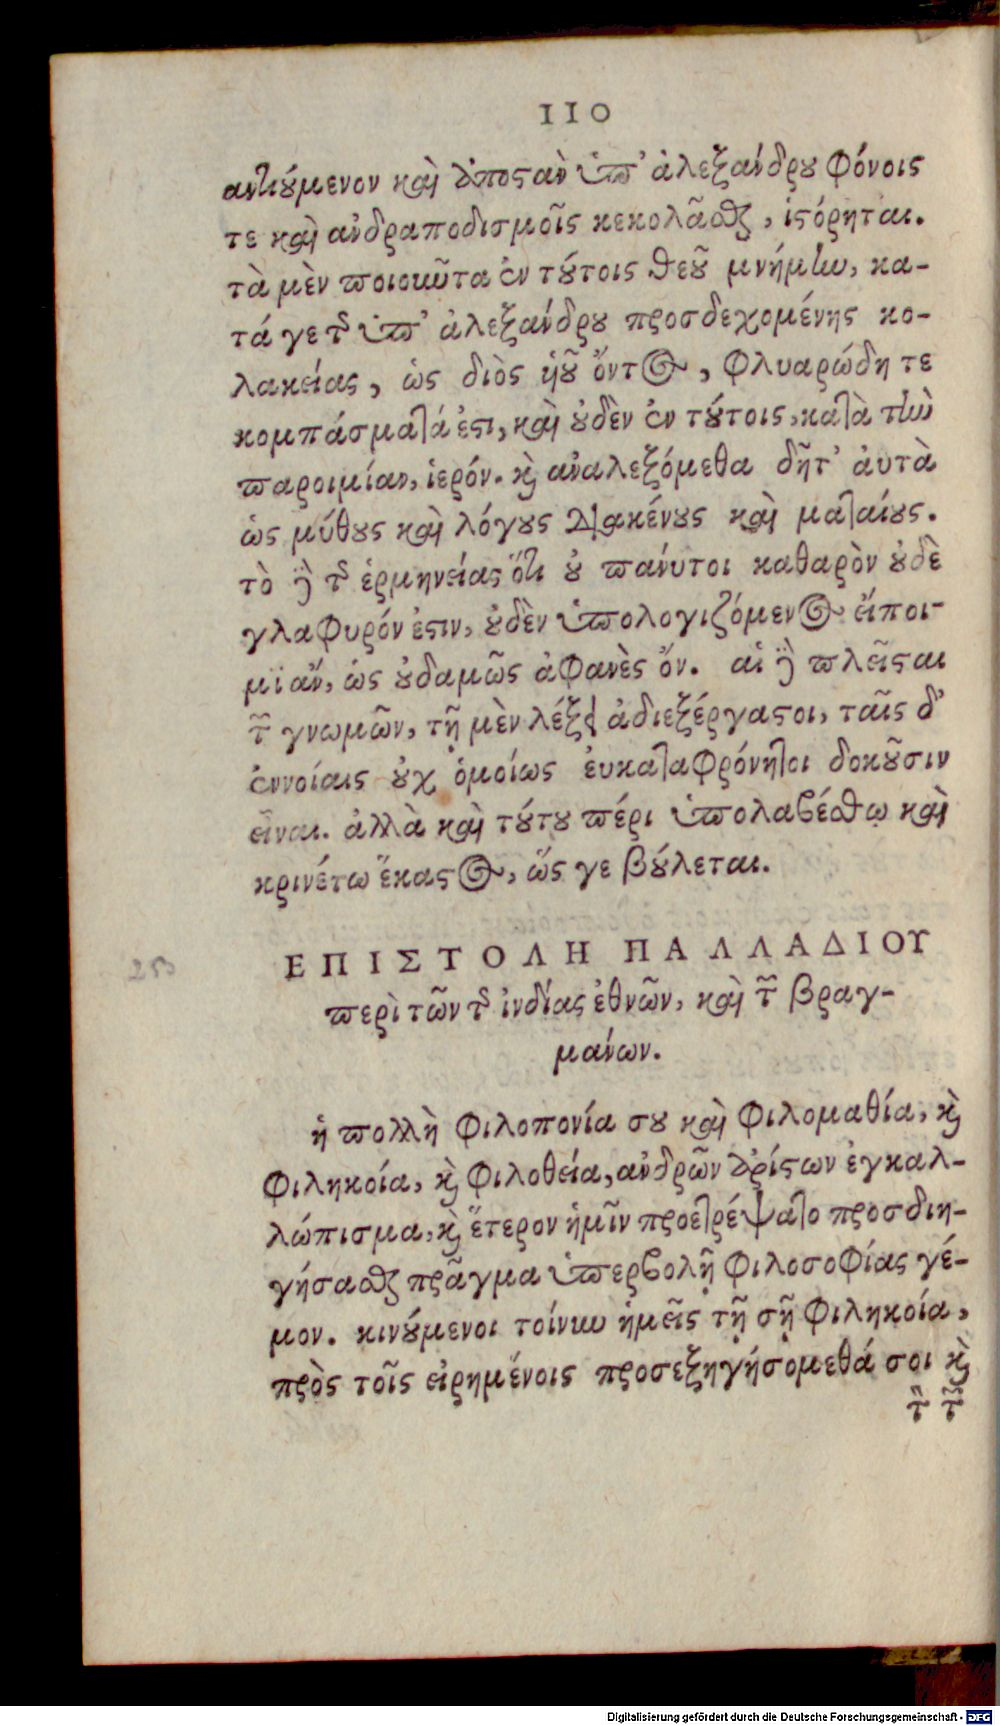 110
αντιούμενον καὶ ἀποστὰν ὑπ' ἀλεξάνδρου φόνοις
τε καὶ ἀνδραποδισμοῖς κεκολᾶσθαι, ἱστόρηται.
τὰ μὲν ποιοῦντα ἐν τούτοις θεοῦ μνήμην, κα-
τά γε τῆς ὑπ' ἀλεξάνδρου προσδεχομένης κο-
λακείας, ὡς διὸς ὑοῦ ὄντος, φλυαρώδη τε
κομπάσματά ἐστι, καὶ οὐδὲν ἐν τούτοις, κατὰ τὴν
παροιμίαν, ἱερόν. καὶ ἀναλεξόμεθα δῆτ' ἀυτὰ
ὡς μύθους καὶ λόγους διακένους καὶ ματαίους.
τὸ δὲ τῆς ἑρμηνείας ὅτι οὐ πάνυτοι καθαρὸν οὐδὲ
γλαφυρόν ἐστιν, οὐδὲν ὑπολογιζόμενος εἴποι-
μι ἄν, ὡς οὐδαμῶς ἀφανὲς ὄν. αἱ δὲ πλεῖσται
τῶν γνωμῶν, τῇ μὲν λέξει ἀδιεξέργαστοι, ταῖς δ'
ἐννοίαις οὐχ ὁμοίως ἐυκαταφρόνητοι δοκοῦσιν
εἶναι. ἀλλὰ καὶ τούτου πέρι ὑπολαβέσθω καὶ
κρινέτω ἕκαστος, ὥς γε βούλεται.
ΕΠΙΣΤΟΛΗ ΠΑΛΛΑΔΙΟΥ
περὶ τῶν τῆς ἰνδίας ἐθνῶν, καὶ τῶν βραγ-
μάνων.
ἡ πολλὴ φιλοπονία σου καὶ φιλομαθία, καὶ
φιληκοία, καὶ φιλοθεία, ἀνδρῶν ἀρίστων ἐγκαλ-
λώπισμα, καὶ ἕτερον ἡμῖν προετρέψατο προσδιη-
γήσασθαι πρᾶγμα ὑπερβολῇ φιλοσοφίας γέ-
μον. κινούμενοι τοίνυν ἡμεῖς τῇ σῇ φιληκοία,
πρὸς τοῖς εἰρημένοις προσεξηγήσομεθά σοι καὶ
τὸν τῶν
Digitalisierung gefördert durch die Deutsche Forschungsgemeinschaft - DFG